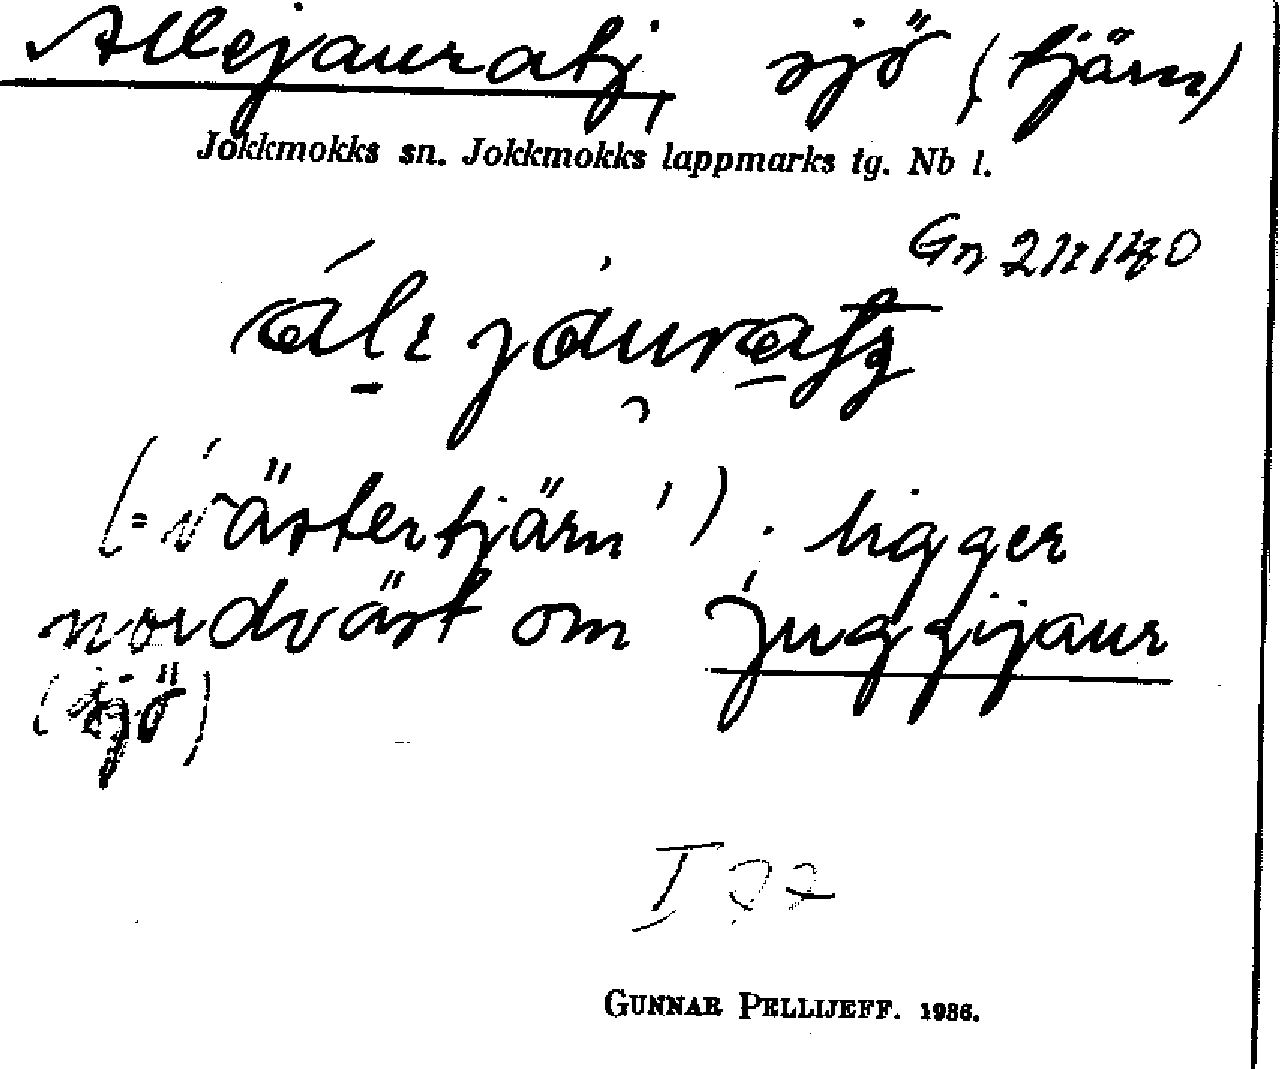 Allejauratj, sjö (tjärn)
Jokkmokks sn. Jokkmokks lappmarks tg. Nb l.
(= 'västertjärn'). ligger
nordväst om Juggijaur
(sjö)
GUNNAR PELLIJEFF. 1986.